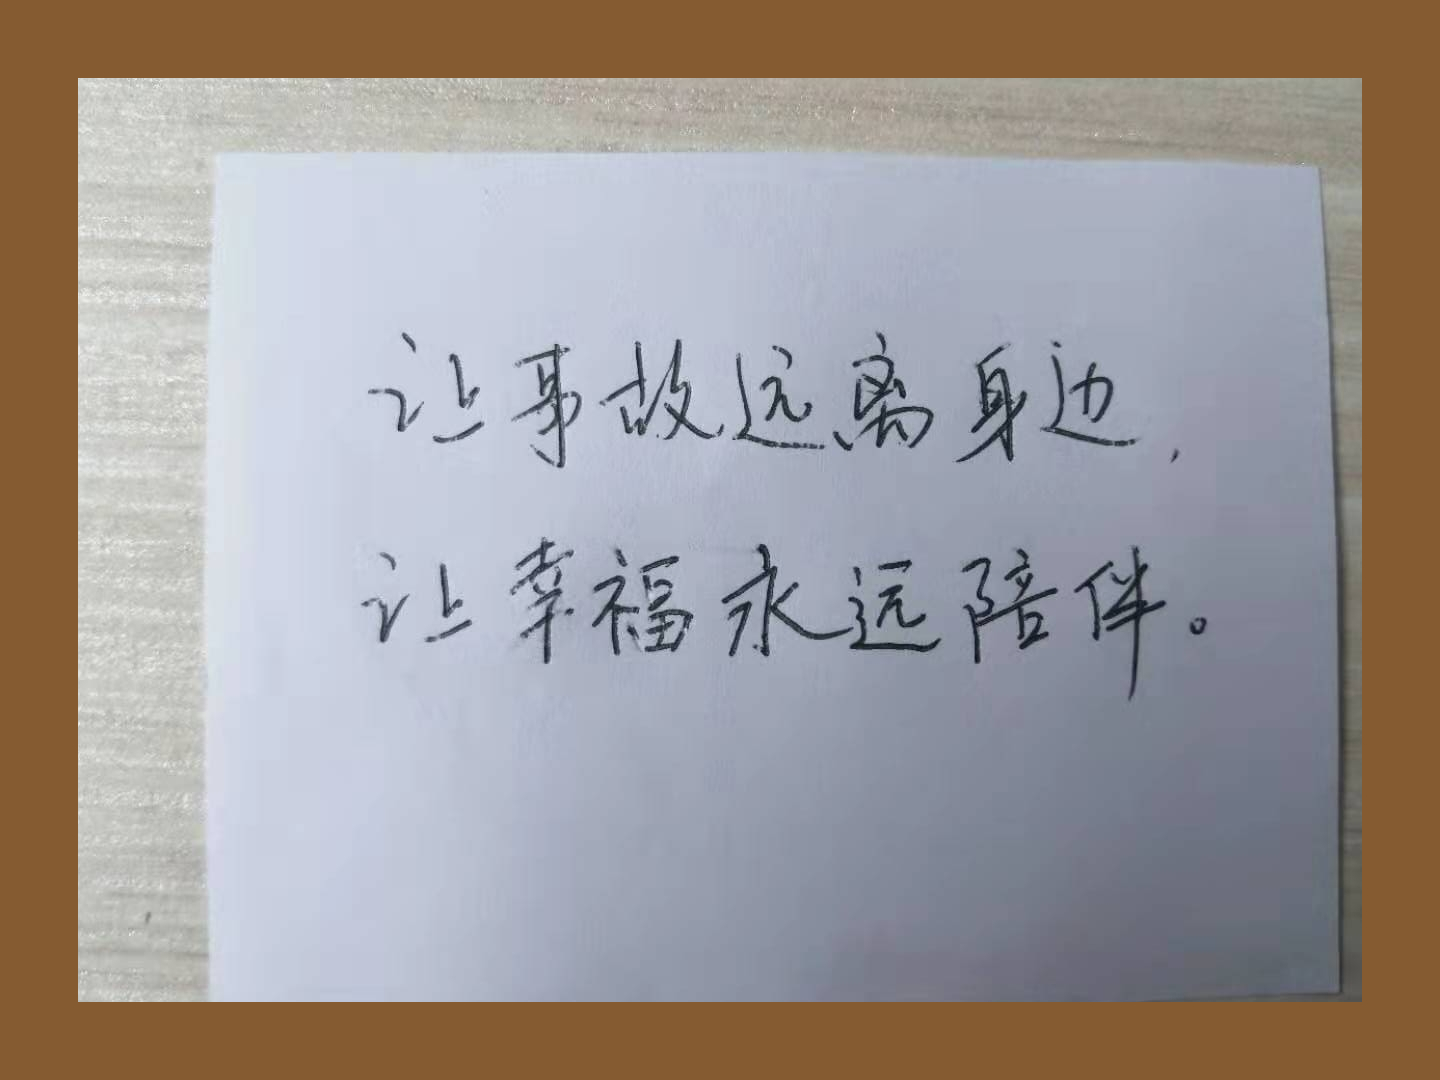 让事故远离身边，
让幸福永远陪伴。